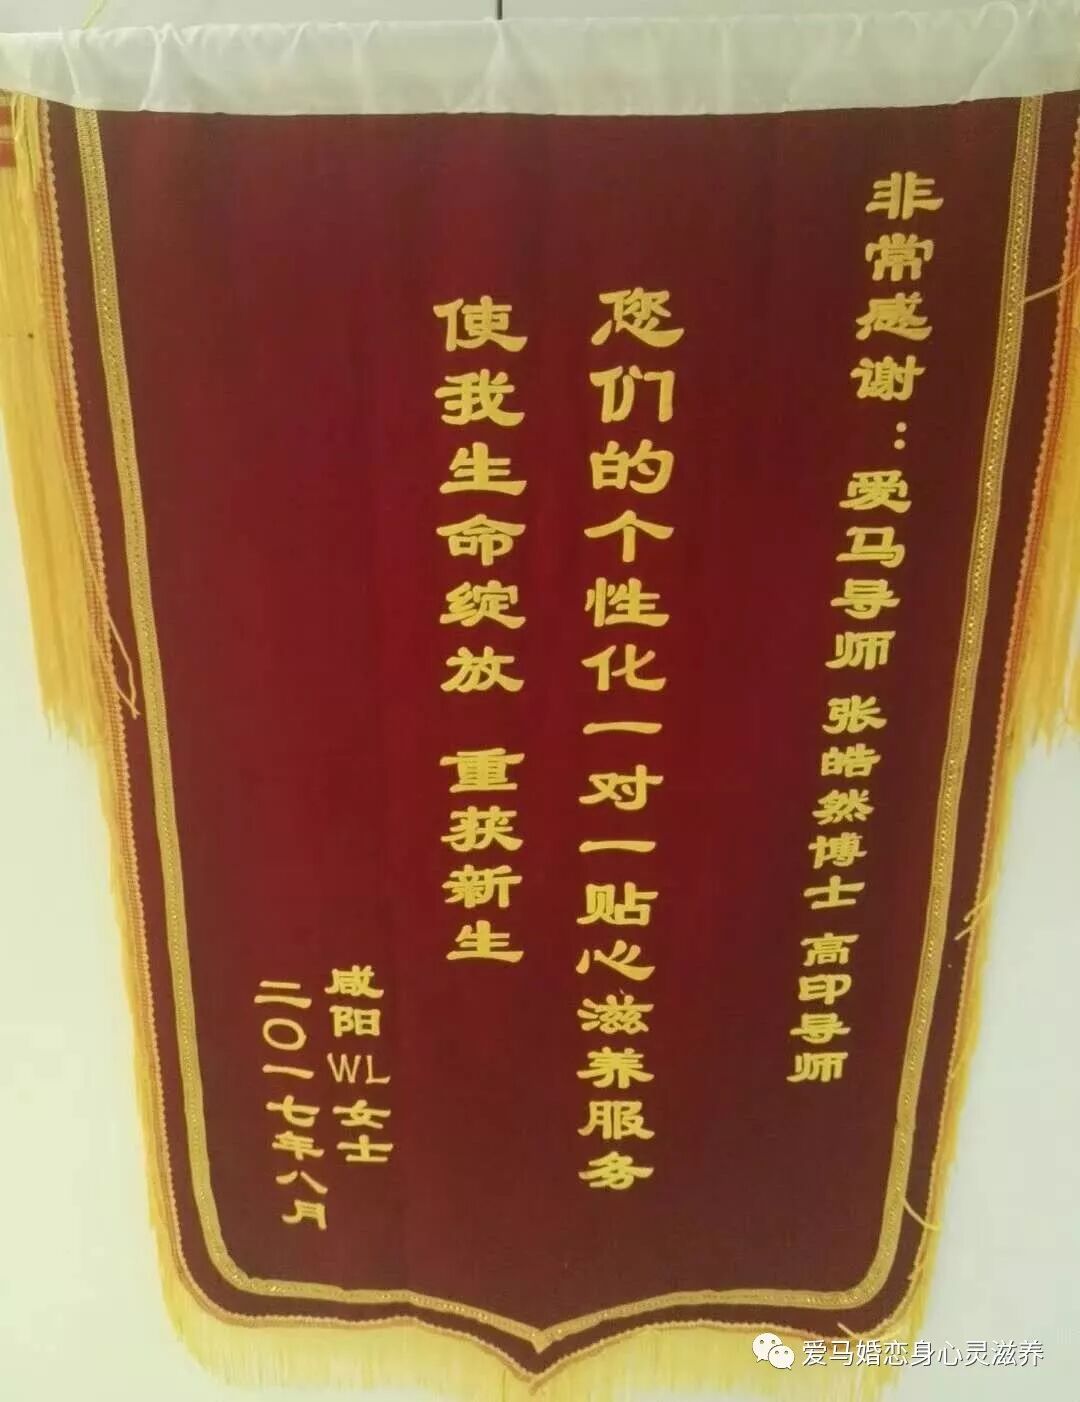 非常感谢：爱马导师 张皓然博士 高印导师
您们的个性化一对一贴心滋养服务
使我生命绽放 重获新生
咸阳WL女士
二〇一七年八月
爱马婚恋身心灵滋养